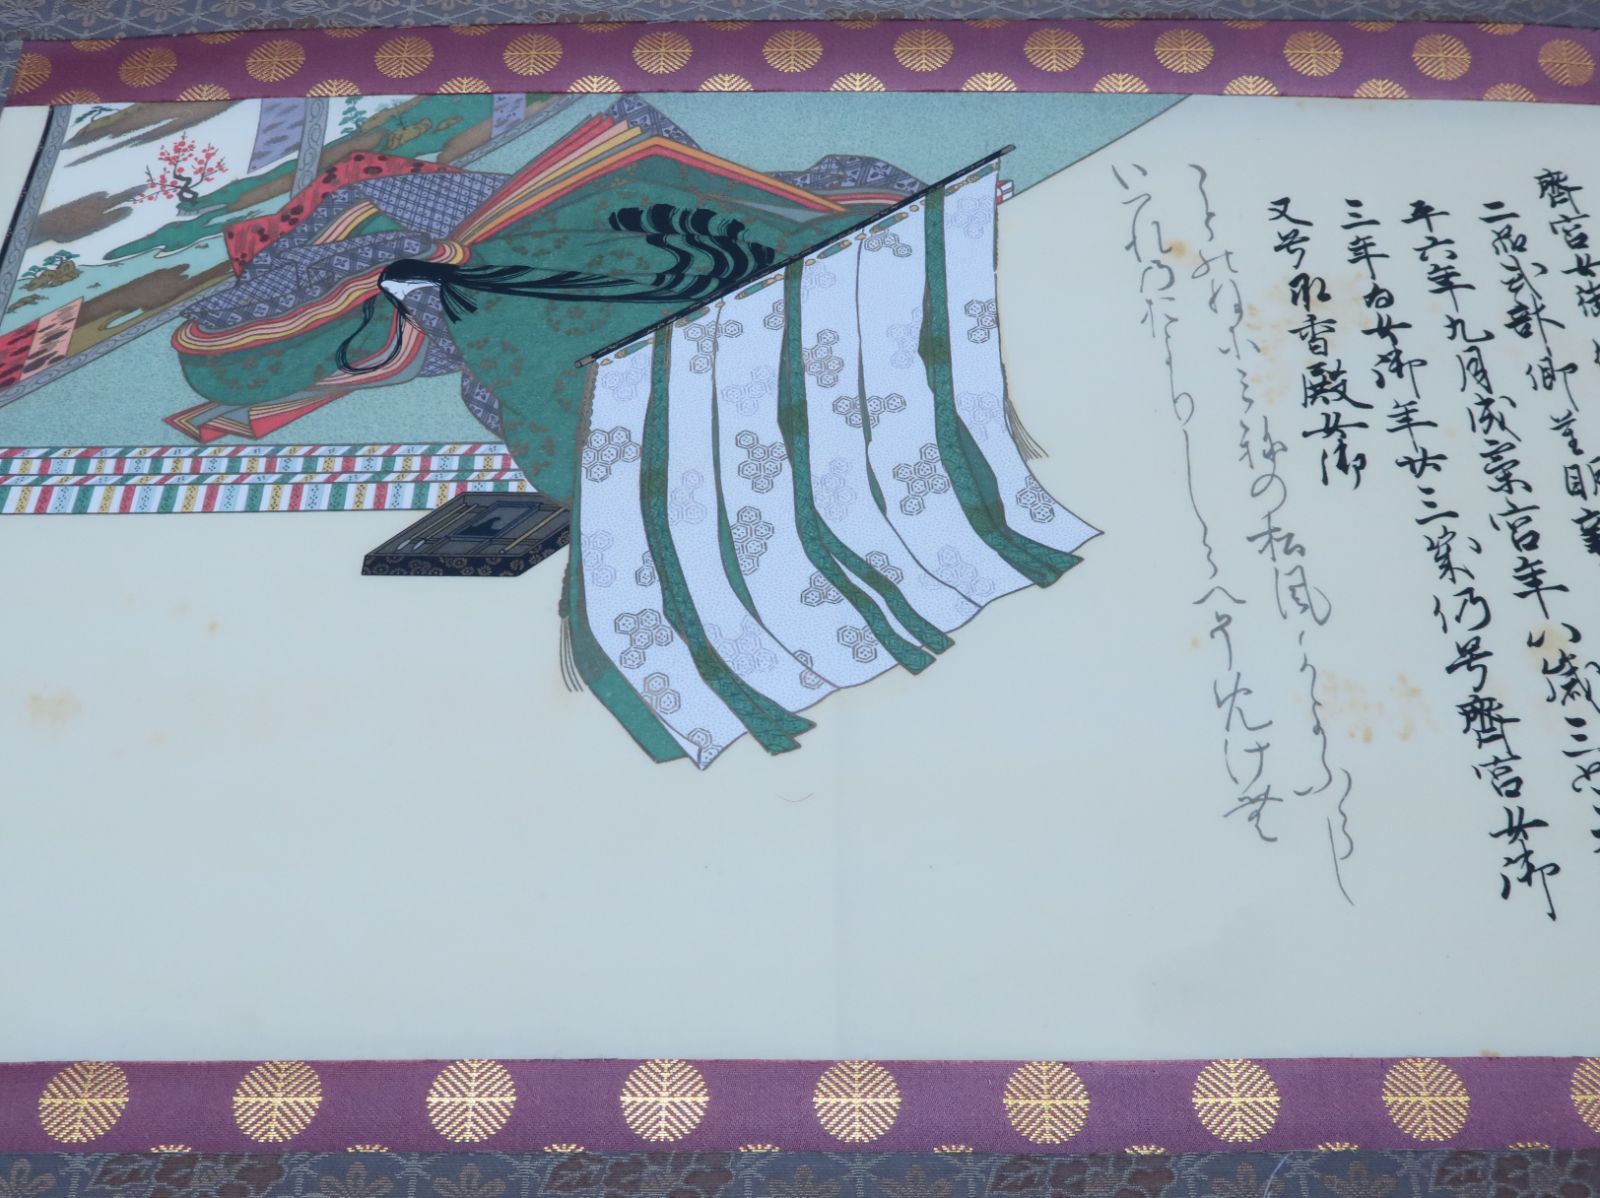 齊宮女御
二品式部卿重明
平六年九月為齋宮年八歳三
三年為女御年廿三歳仍号齊宮女御
又号承香殿女御
ことのねにみねの松風かよふらし
いつれのおよりしらへそめけむ